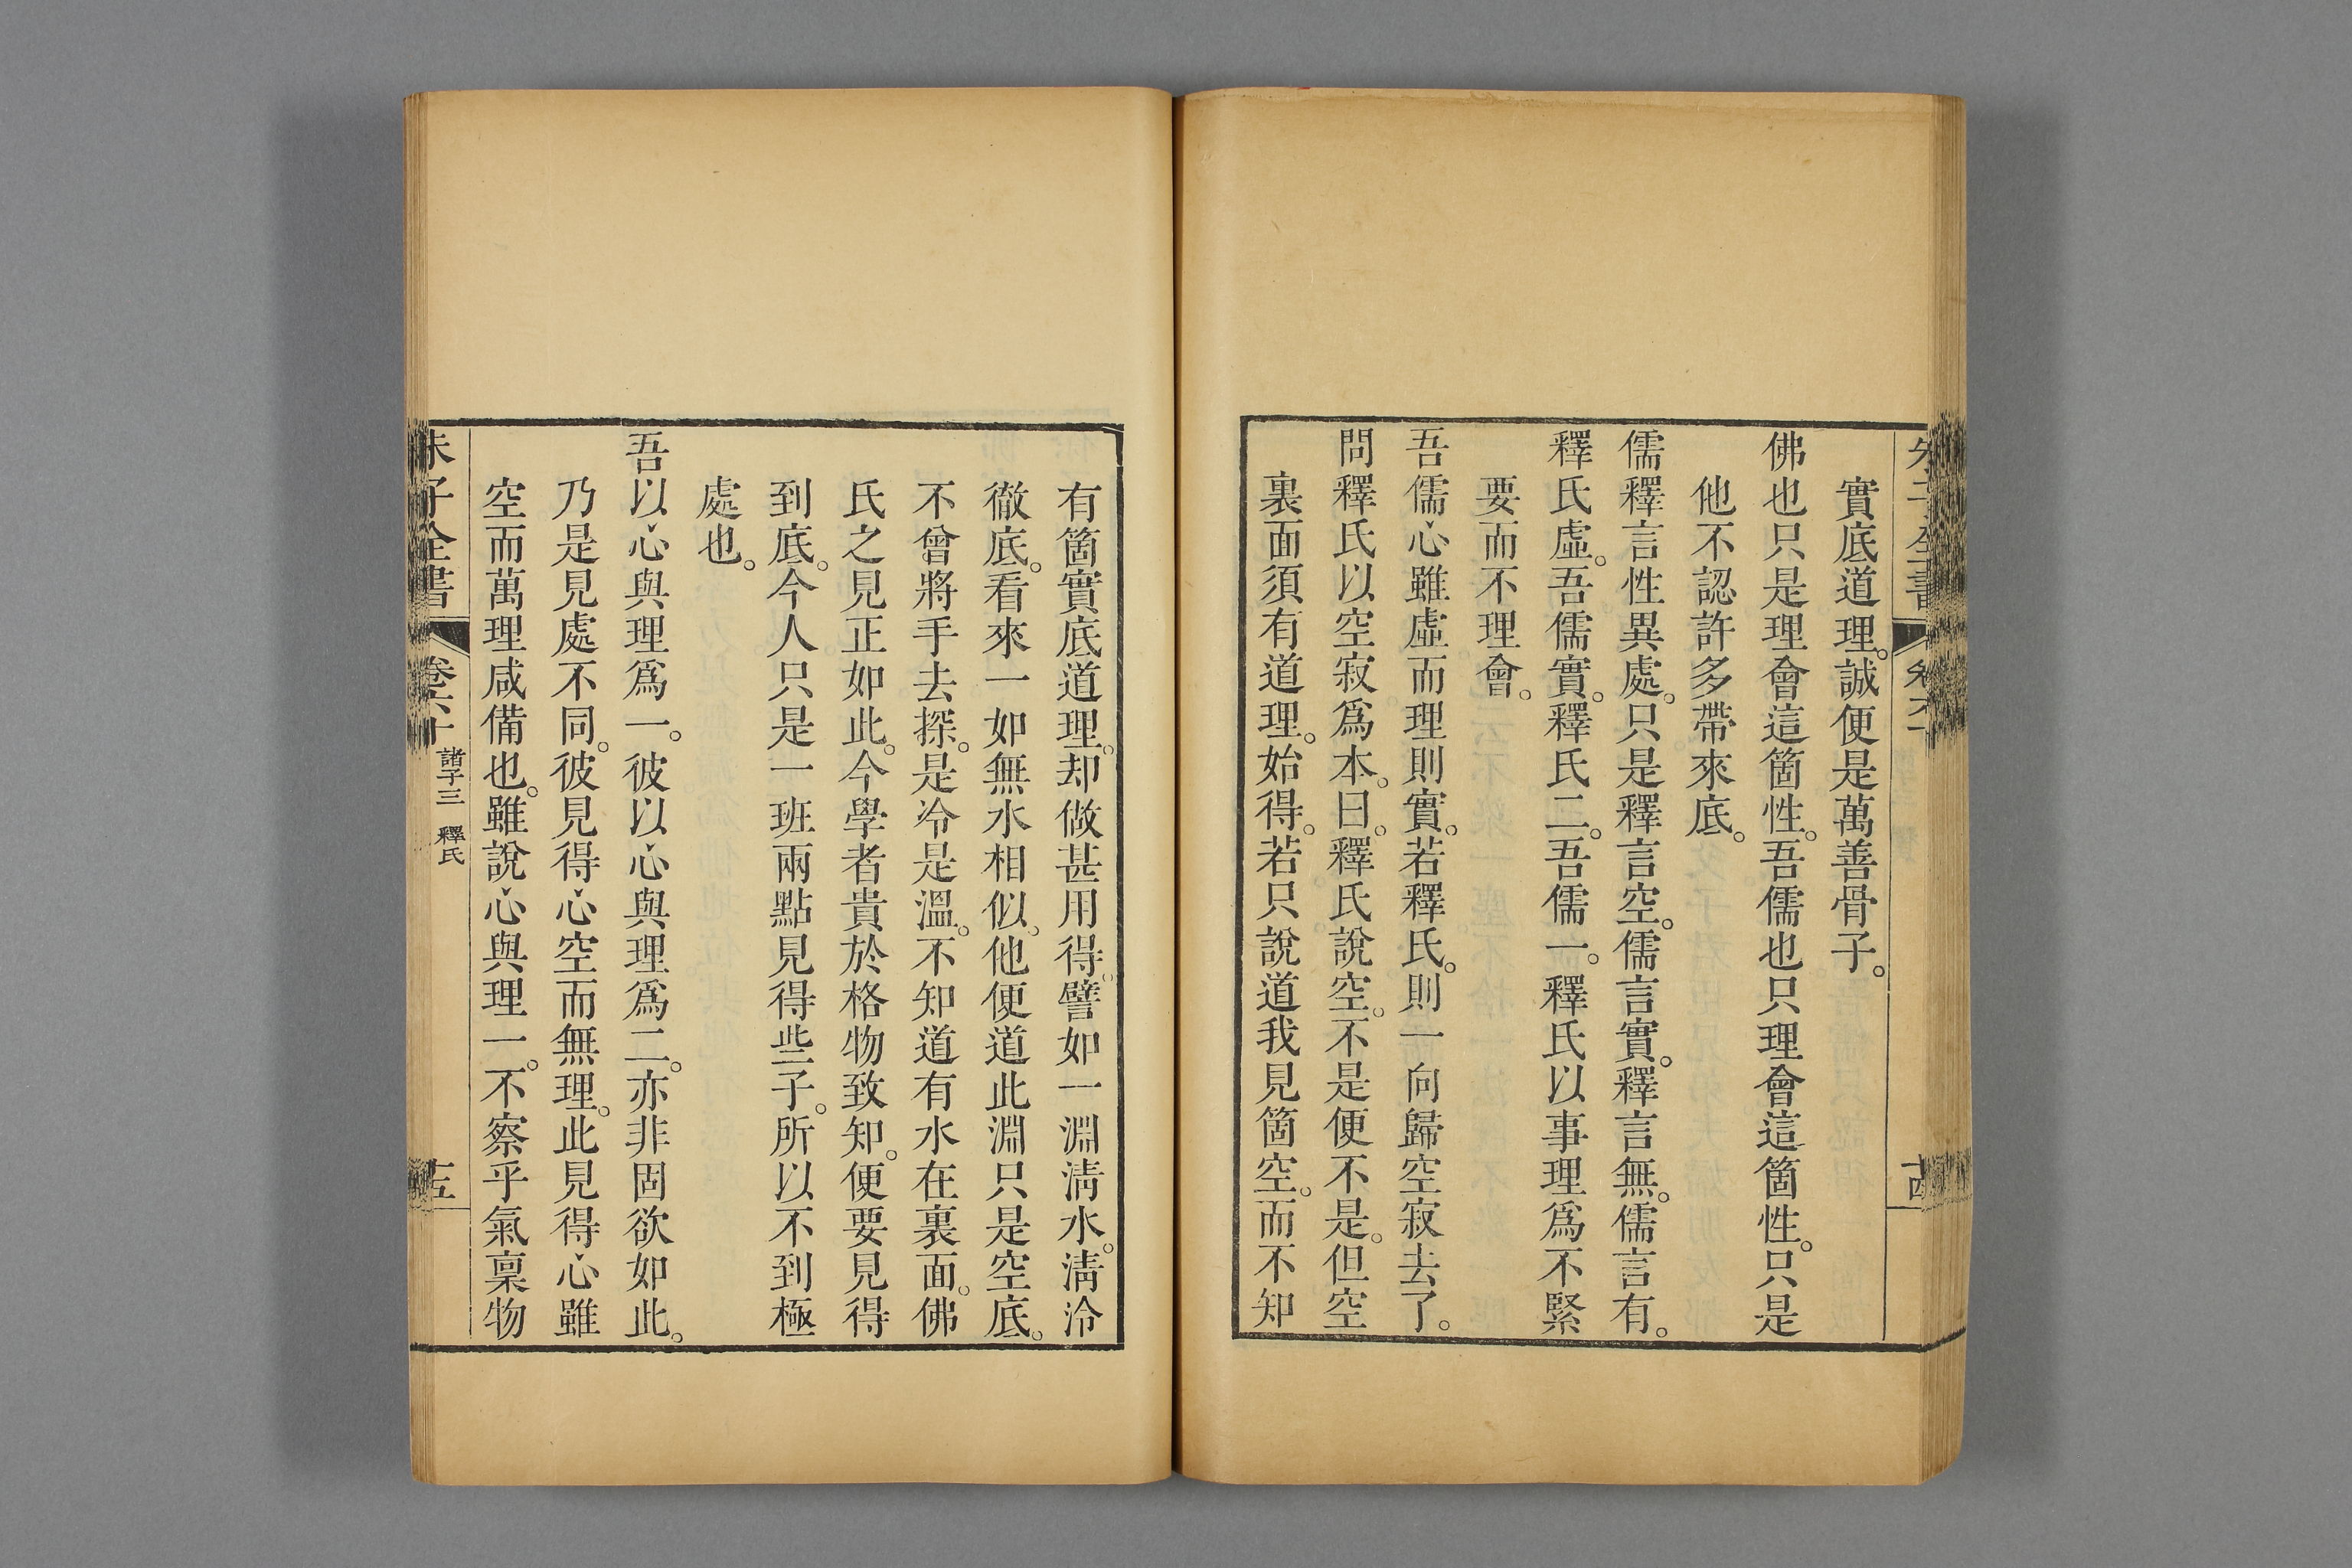 朱子全書 卷六十 十四
實底道理。誠便是萬善骨子。
佛也只是理會這箇性。吾儒也只理會這箇性。只是
他不認許多帶來底。
儒釋言性異處。只是釋言空。儒言實。釋言無。儒言有。
釋氏虛。吾儒實。釋氏二。吾儒一。釋氏以事理爲不緊
要而不理會。
吾儒心雖虛而理則實。若釋氏。則一向歸空寂去了。
問釋氏以空寂爲本。曰。釋氏說空。不是便不是。但空
裏面須有道理。始得。若只說道我見箇空。而不知
有箇實底道理。却做甚用得。譬如一淵淸水。淸泠
徹底。看來一如無水相似。他便道此淵只是空底。
不曾將手去探。是冷是溫。不知道有水在裏面。佛
氏之見正如此。今學者貴於格物致知。便要見得
到底。今人只是一班兩點見得些子。所以不到極
處也。
吾以心與理爲一。彼以心與理爲二。亦非固欲如此。
乃是見處不同。彼見得心空而無理。此見得心雖
空而萬理咸備也。雖說心與理一。不察乎氣稟物
朱子全書 卷六十 諸子三 釋氏 十五